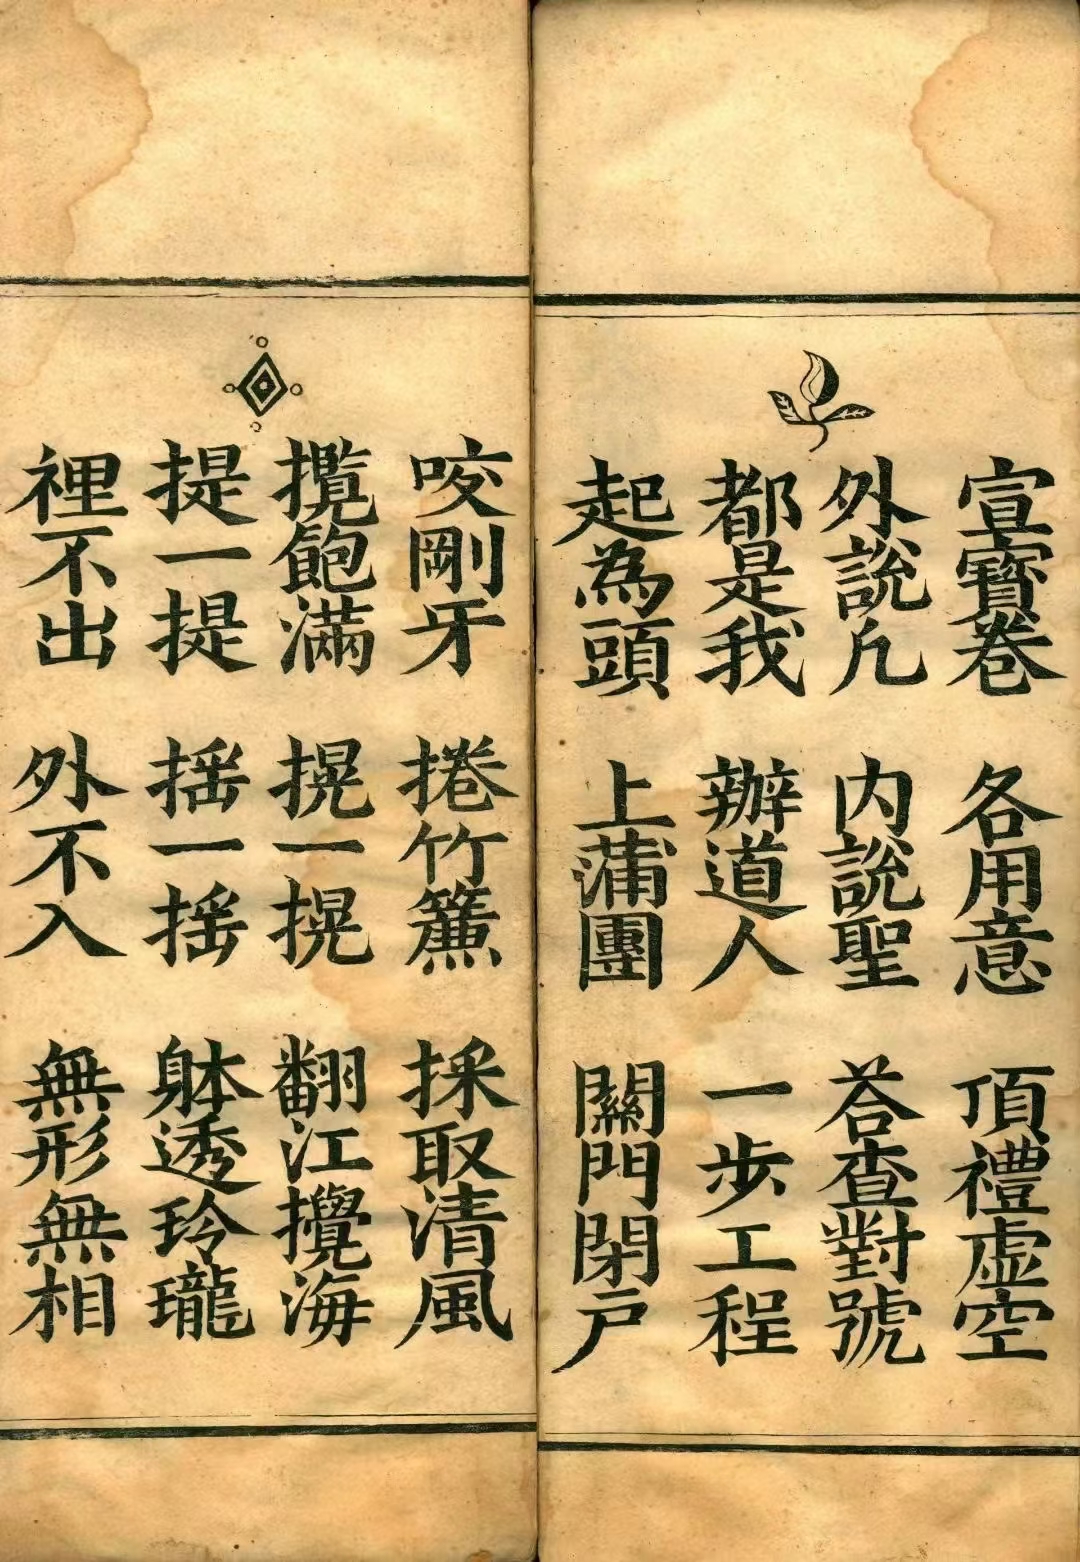 宣寳卷 各用意 頂禮虚空
外說凢 内說聖 荅查對號
都是我 辦道人 一步工程
起為頭 上蒲團 關門閉戸
咬剛牙 捲竹簾 採取清風
攬飽滿 㨪一㨪 翻江攪海
提一提 揺一揺 躰透玲瓏
裡不出 外不入 無形無相